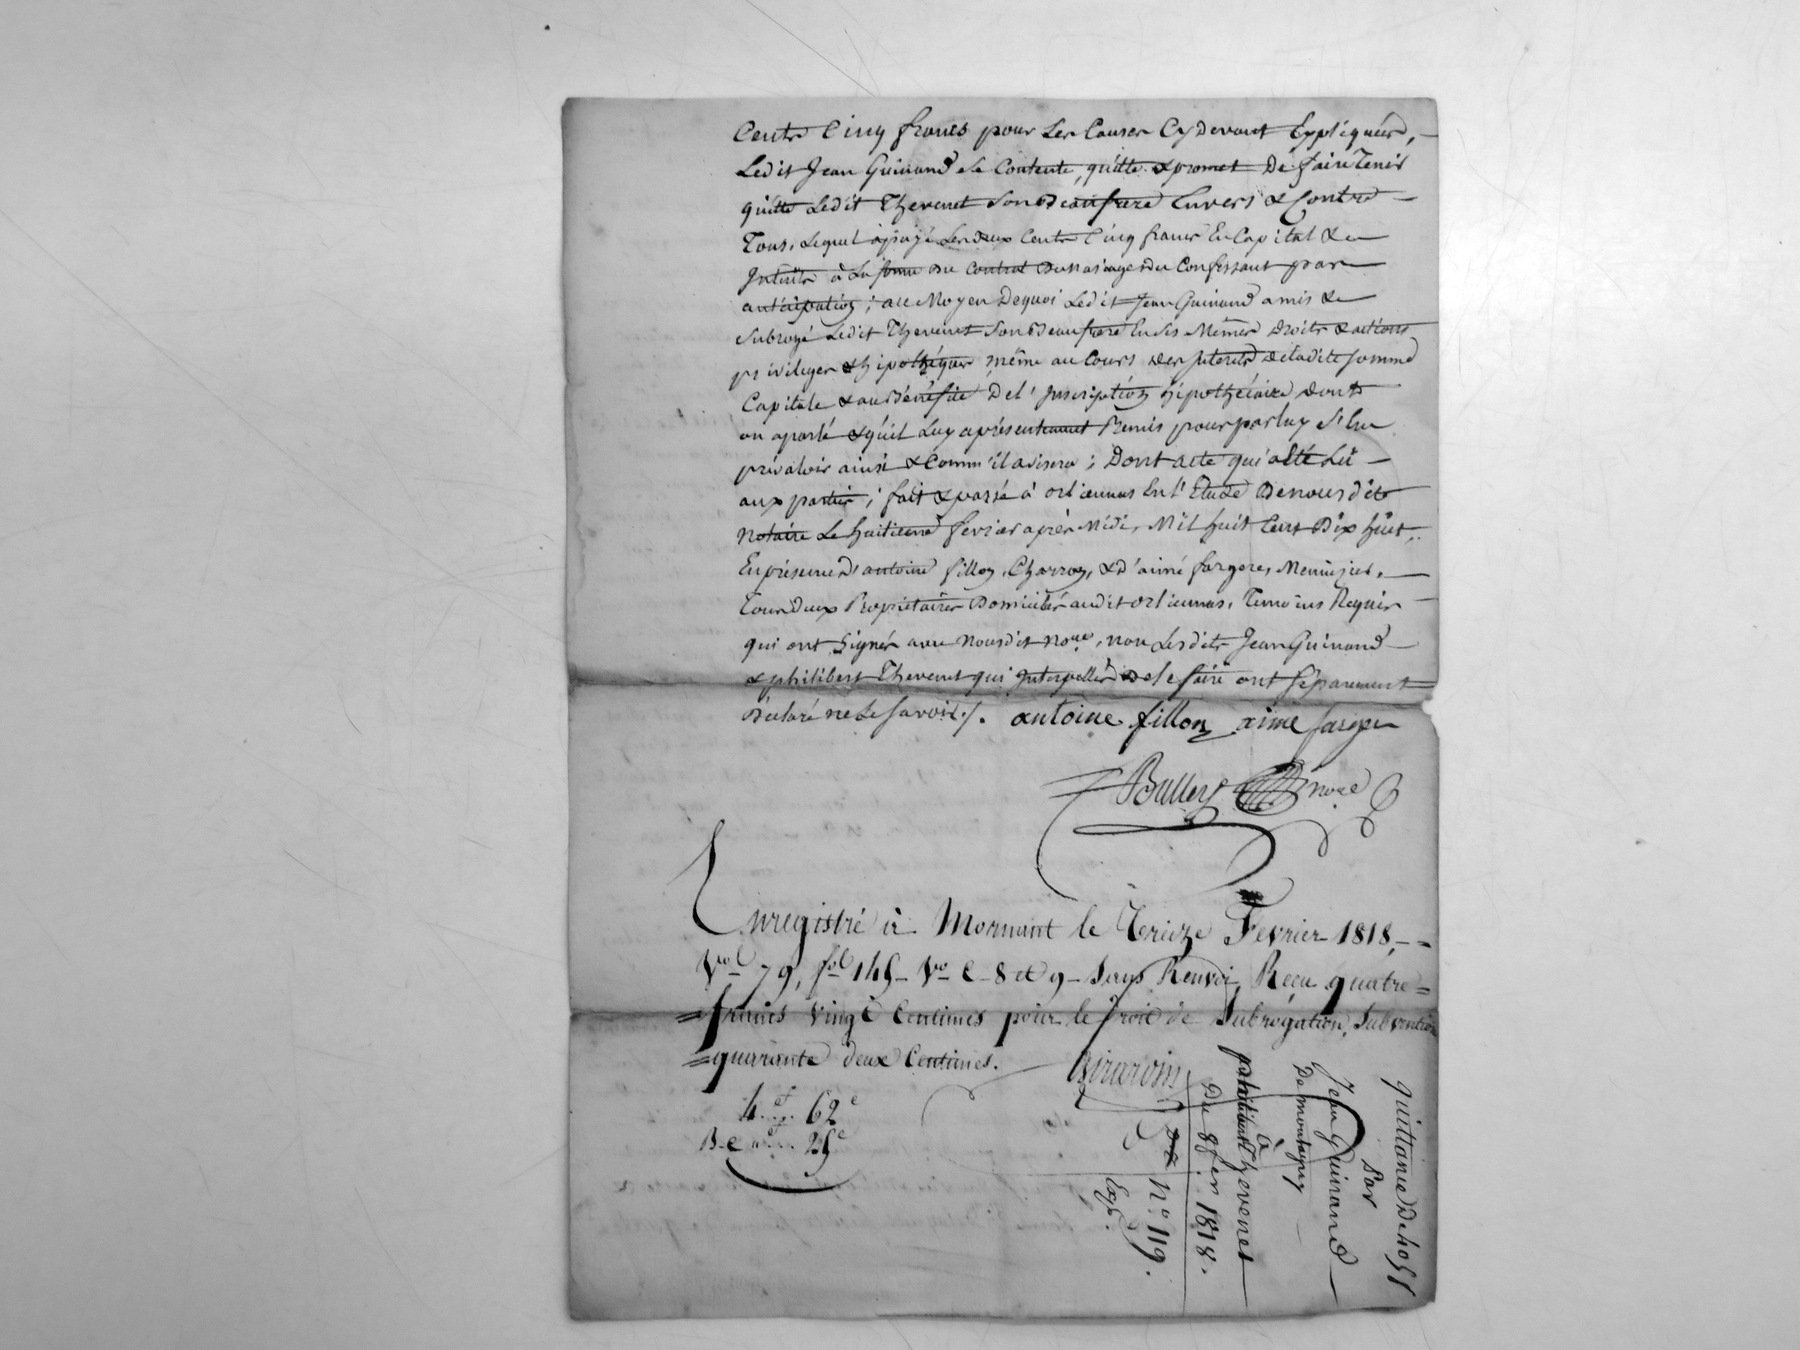 Cents Cinq francs pour Les Causes Cydevant Expliqués,
Ledit Jean Guinand se Contente, quitte & promet De faire Tenir
quitte Ledit Thevenet Son Beaufrere Envers & Contre
Tous, Lequel a payé Les deux Cents Cinq francs En Capital &
Interets à La forme Du Contrat De mariage du Confessant par
anticipation; au Moyen Dequoi Ledit Jean Guinand a mis &
Subrogé Ledit Thevenet Son Beaufrere En Ses Mêmes Droits & actions
privileges & hipothéques même au Cours Des Interets De ladite Somme
Capitale & au Bénéfice De l'Inscription hipothécaire Dont
on a parlé & qu'il Luy a présentement Remis pour par luy S'En
prévaloir ainsi & Comm'il avisera; Dont acte qui a Eté Lû
aux parties; fait & passé à orliennas En l'Etude De nous dit
Notaire Le huitieme fevrier après Midi, Mil huit Cent Dix huit,
En présence d'antoine fillon, Charron, & d'aimé fargere, Menuisier,
Tous deux Propriétaires Domiciliés audit orliennas, Temoins Requis
qui ont Signés avec Nousdit Nore, non Lesdits Jean Guinand
& philibert Thevenet qui Interpellés De le faire ont Séparement
Déclaré ne Le Savoir./. antoine fillon aime farger
Balley nore
Enregistré à Mornant le Treize Fevrier 1818,
Vol 79, fol 145 Vo C 8 et 9 Sans Renvoi, Reçu quatre
francs Vingt Centimes pour le Droit de Subrogation, Subvention
quarante deux Centimes. Girardin
4f 62c
25c
quittance De 405f
Par
Jean Guinand
De montagny
à
philibert Thevenet
Du 8 fer 1818.
No 119.
Exp.